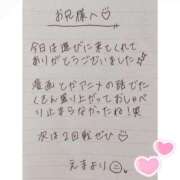 お兄様へ♡
今日は遊びに来てくれて
ありがとうございました
漫画とかアニメの話でた
くさん盛り上がっておしゃべ
り止まらなかったね!笑
次は2回戦ぜひ♡
えまより